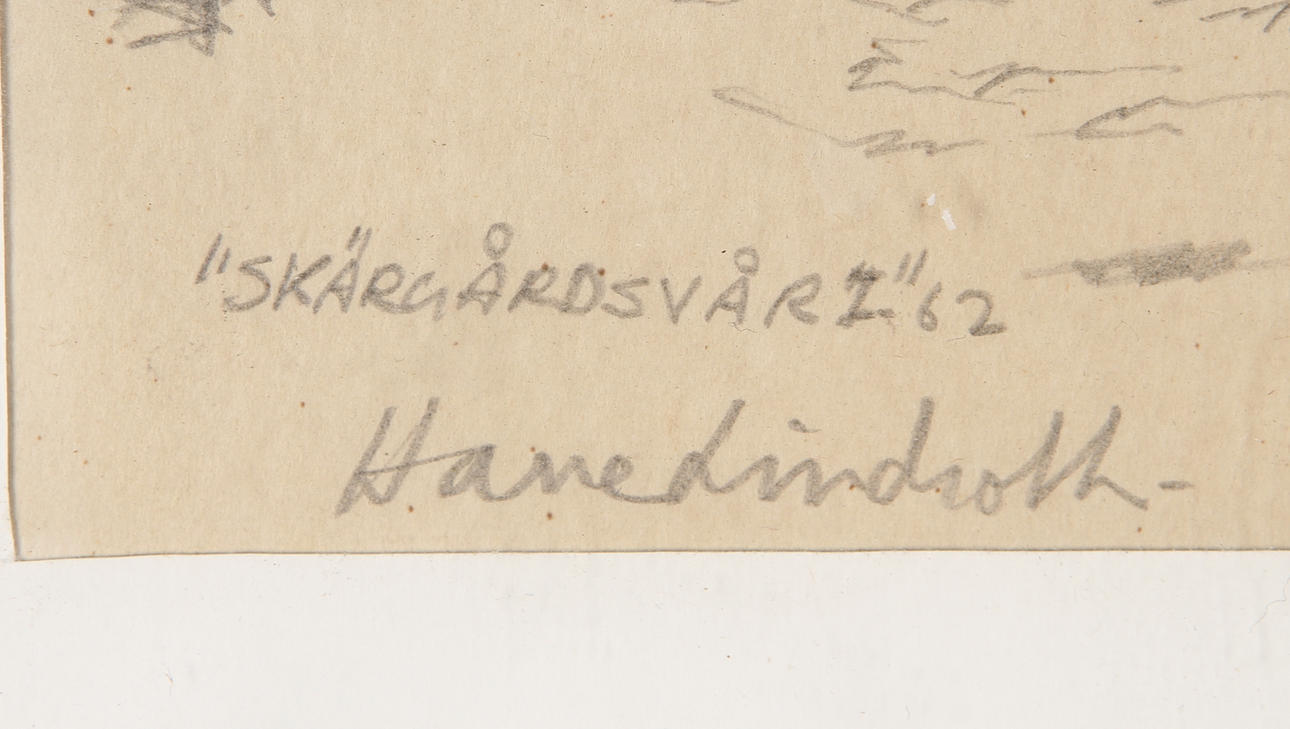 "SKÄRGÅRDSVÅR I" 62
Hane Lindroth-